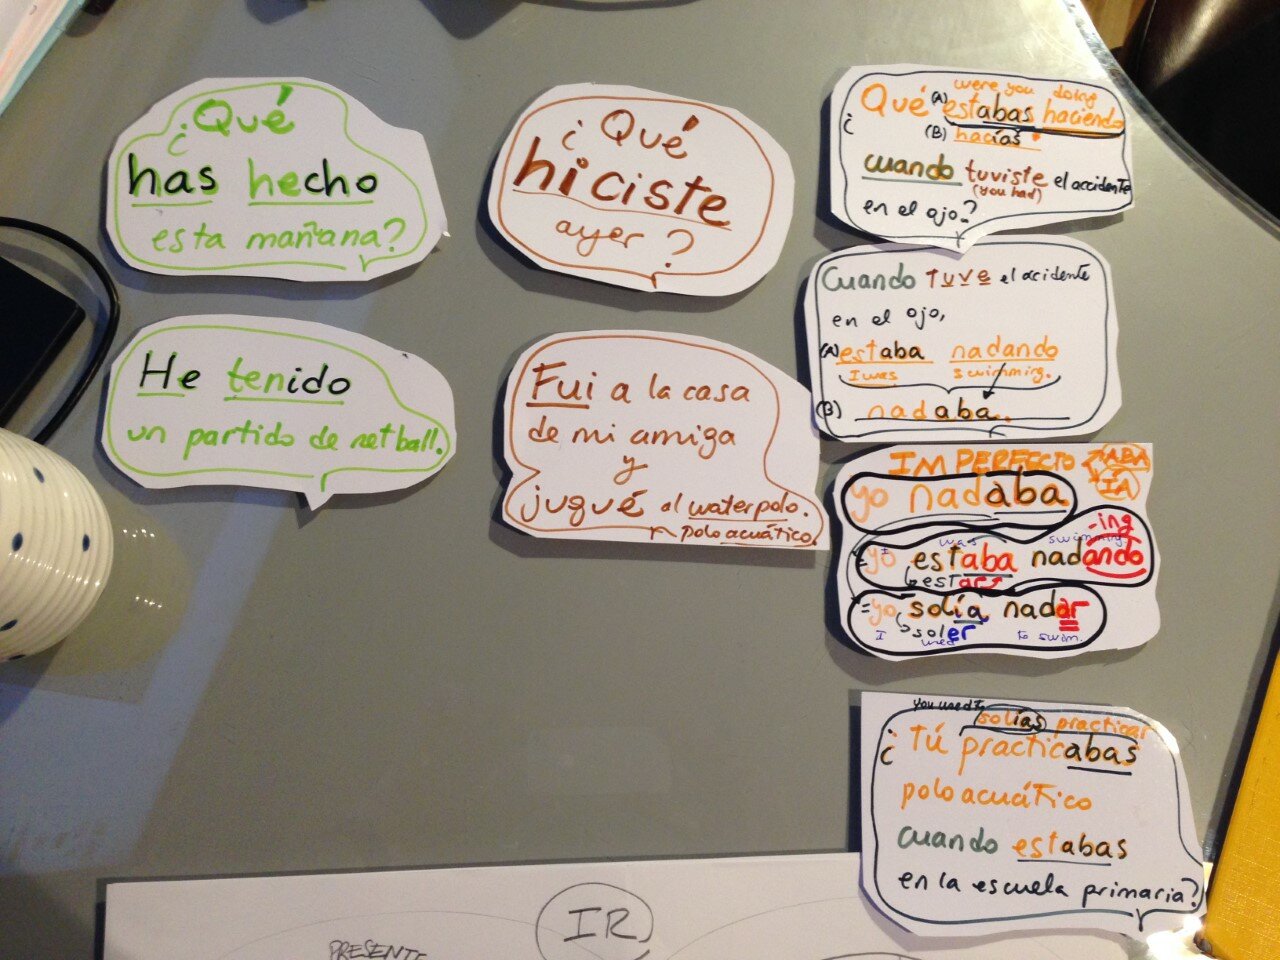 ¿Qué
has hecho
esta mañana?
He tenido
un partido de netball.
¿Qué
hiciste
ayer?
Fui a la casa
de mi amiga
y
jugué al waterpolo.
polo acuático.
were you doing
¿Qué (A) estabas haciendo
(B) hacías
cuando tuviste el accidente
(you had)
en el ojo?
Cuando tuve el accidente
en el ojo,
(A) estaba nadando
I was swimming.
(B) nadaba.
IMPERFECTO ABA
ÍA
yo nadaba
-ing
I was swimming.
= yo estaba nadando
estar
= yo solía nadar
soler
I used to swim.
you used to
solías practicar
¿Tú practicabas
polo acuático
cuando estabas
en la escuela primaria?
IR
PRESENTE